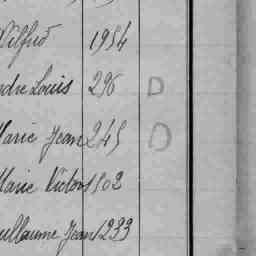 Wilfrid 1954
ndre Louis 296 D
Marie Jean 245 D
Marie Victor 1502
uillaume Jean 1233